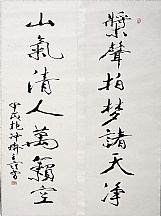 槳聲拍梦諸天淨
山氣清人萬籟空